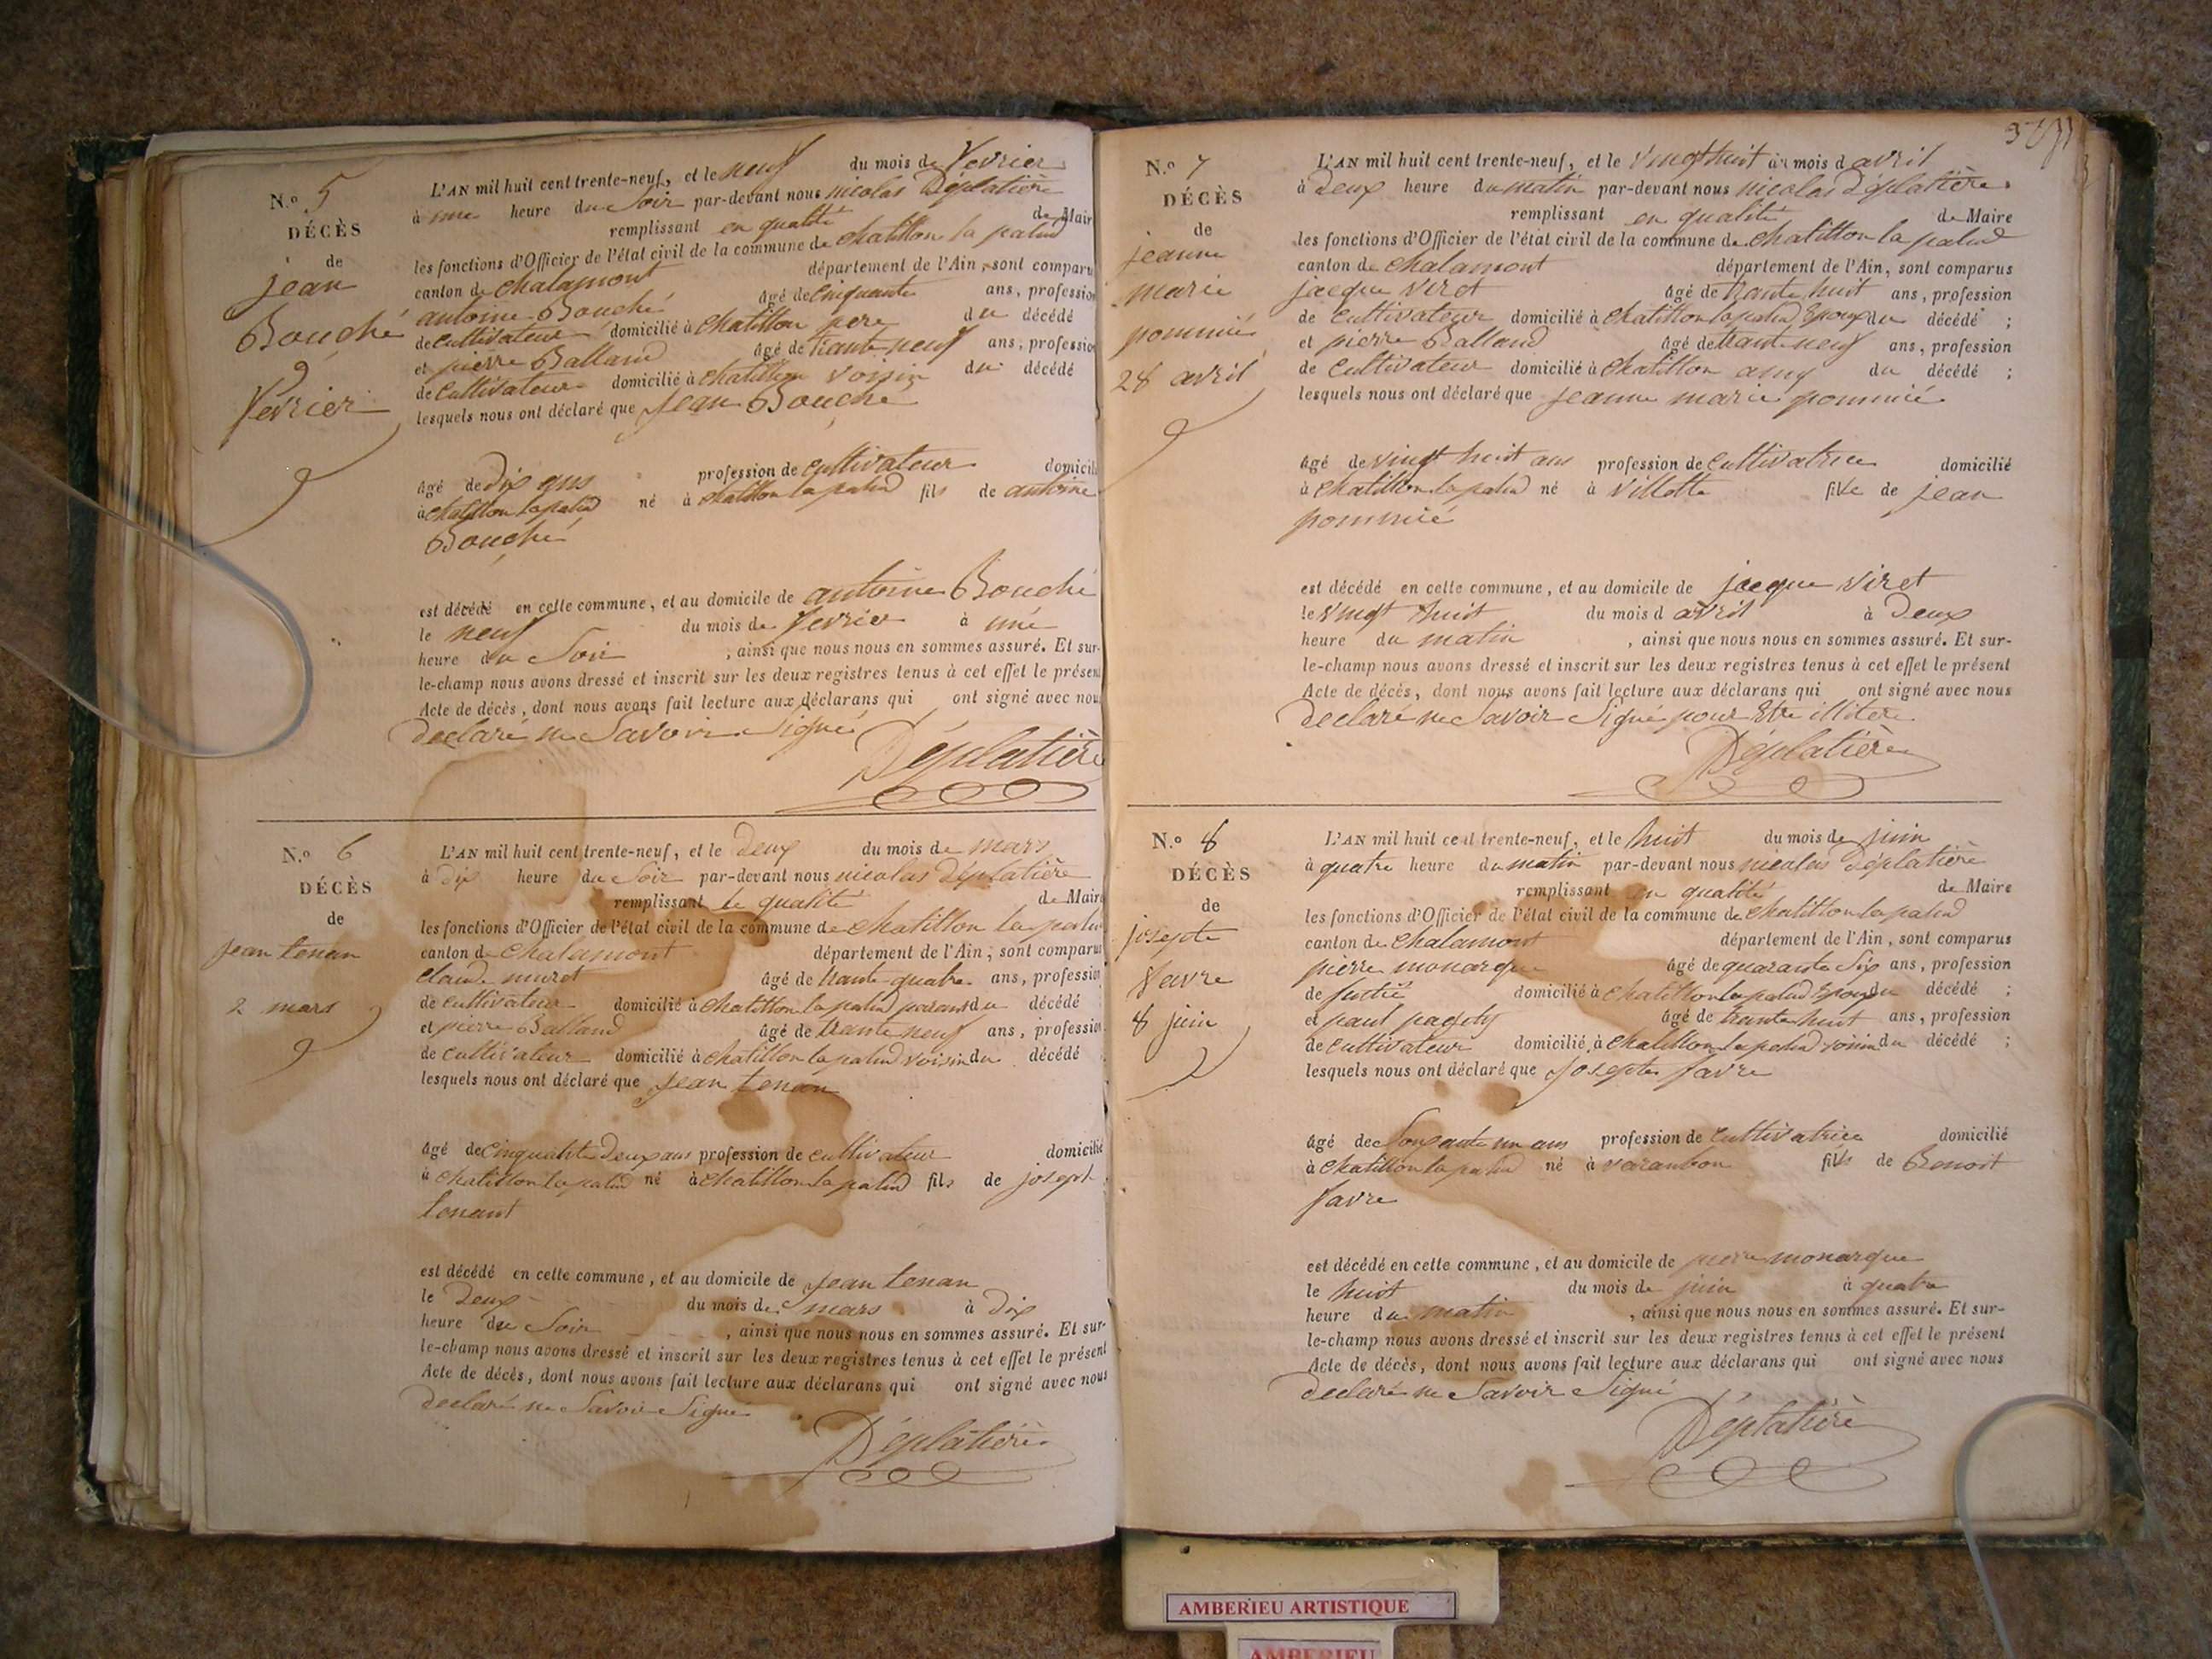 N.o 5
DÉCÈS
de
jean
Bouché
9
fevrier
L'AN mil huit cent trente-neuf, et le neuf du mois de fevrier
à une heure du Soir par-devant nous nicolas Déplatière
remplissant en qualité de Mair
les fonctions d'Officier de l'état civil de la commune de chatillon la palud
canton de chalamont département de l'Ain, sont comparu
antoine Bouché âgé de cinquante ans, profession
de cultivateur domicilié à chatillon pere du décédé
et pierre Balland âgé de trante neuf ans, profession
de cultivateur domicilié à chatillon voisin du décédé
lesquels nous ont déclaré que jean Bouché
âgé de dix ans profession de cultivateur domicili
à chatillon la palud né à chatillon la palud fils de antoine
Bouché
est décédé en celle commune, et au domicile de antoine Bouché
le neuf du mois de fevrier à une
heure du Soir , ainsi que nous nous en sommes assuré. Et sur-
le-champ nous avons dressé et inscrit sur les deux registres tenus à cet effet le présent
Acte de décès, dont nous avons fait lecture aux déclarans qui ont signé avec nous
declaré ne Savoir Signé
Déplatière
N.o 6
DÉCÈS
de
jean tenan
2 mars
L'AN mil huit cent trente-neuf, et le deux du mois de mars
à dix heure du Soir par-devant nous nicolas Déplatière
remplissant le qualité de Maire
les fonctions d'Officier de l'état civil de la commune de chatillon la palud
canton de chalamont département de l'Ain, sont comparus
claude muret âgé de trante quatre ans, profession
de cultivateur domicilié à chatillon la palud parans du décédé
et pierre Balland âgé de trante neuf ans, profession
de cultivateur domicilié à chatillon la palud voisin du décédé
lesquels nous ont déclaré que jean tenan
âgé de cinquante deux ans profession de cultivateur domicilié
à chatillon la palud né à chatillon la palud fils de joseph
tenant
est décédé en cette commune, et au domicile de jean tenan
le deux du mois de mars à dix
heure du Soir , ainsi que nous nous en sommes assuré. Et sur-
le-champ nous avons dressé et inscrit sur les deux registres tenus à cet effet le présent
Acte de décès, dont nous avons fait lecture aux déclarans qui ont signé avec nous
declaré ne Savoir Signé
Déplatière
N.o 7
DÉCÈS
de
jeanne
marie
pommié
28 avril
L'AN mil huit cent trente-neuf, et le vingt huit du mois d avril
à deux heure du matin par-devant nous nicolas Déplatière
remplissant en qualité de Maire
les fonctions d'Officier de l'état civil de la commune de chatillon la palud
canton de chalamont département de l'Ain, sont comparus
jacque viret âgé de trante huit ans, profession
de cultivateur domicilié à chatillon la palud Epoux du décédé ;
et pierre Balland âgé de trante neuf ans, profession
de cultivateur domicilié à chatillon amy du décédé ;
lesquels nous ont déclaré que jeanne marie pommié
âgé de vingt huit ans profession de cultivatrice domicilié
à chatillon la palud né à villette fille de jean
pommié
est décédé en celle commune, et au domicile de jacque viret
le vingt huit du mois d avril à deux
heure du matin , ainsi que nous nous en sommes assuré. Et sur-
le-champ nous avons dressé et inscrit sur les deux registres tenus à cet effet le présent
Acte de décès, dont nous avons fait lecture aux déclarans qui ont signé avec nous
declaré ne Savoir Signé pour Etre illitere
Déplatière
N.o 8
DÉCÈS
de
josepte
favre
8 juin
L'AN mil huit cent trente-neuf, et le huit du mois de juin
à quatre heure du matin par-devant nous nicolas Déplatière
remplissant en qualité de Maire
les fonctions d'Officier de l'état civil de la commune de chatillon la palud
canton de chalamont département de l'Ain, sont comparus
pierre monarque âgé de quarante Six ans, profession
de domicilié à chatillon la palud Epoux du décédé ;
et paul âgé de trante huit ans, profession
de cultivateur domicilié à chatillon la palud voisin du décédé ;
lesquels nous ont déclaré que Josepte favre
âgé de Soixante un ans profession de cultivatrice domicilié
à chatillon la palud né à varambon fils de Benoit
favre
est décédé en cette commune, et au domicile de pierre monarque
le huit du mois de juin à quatre
heure du matin , ainsi que nous nous en sommes assuré. Et sur-
le-champ nous avons dressé et inscrit sur les deux registres tenus à cet effet le présent
Acte de décès, dont nous avons fait lecture aux déclarans qui ont signé avec nous
declaré ne Savoir Signé
Déplatière
AMBERIEU ARTISTIQUE
AMBERIEU